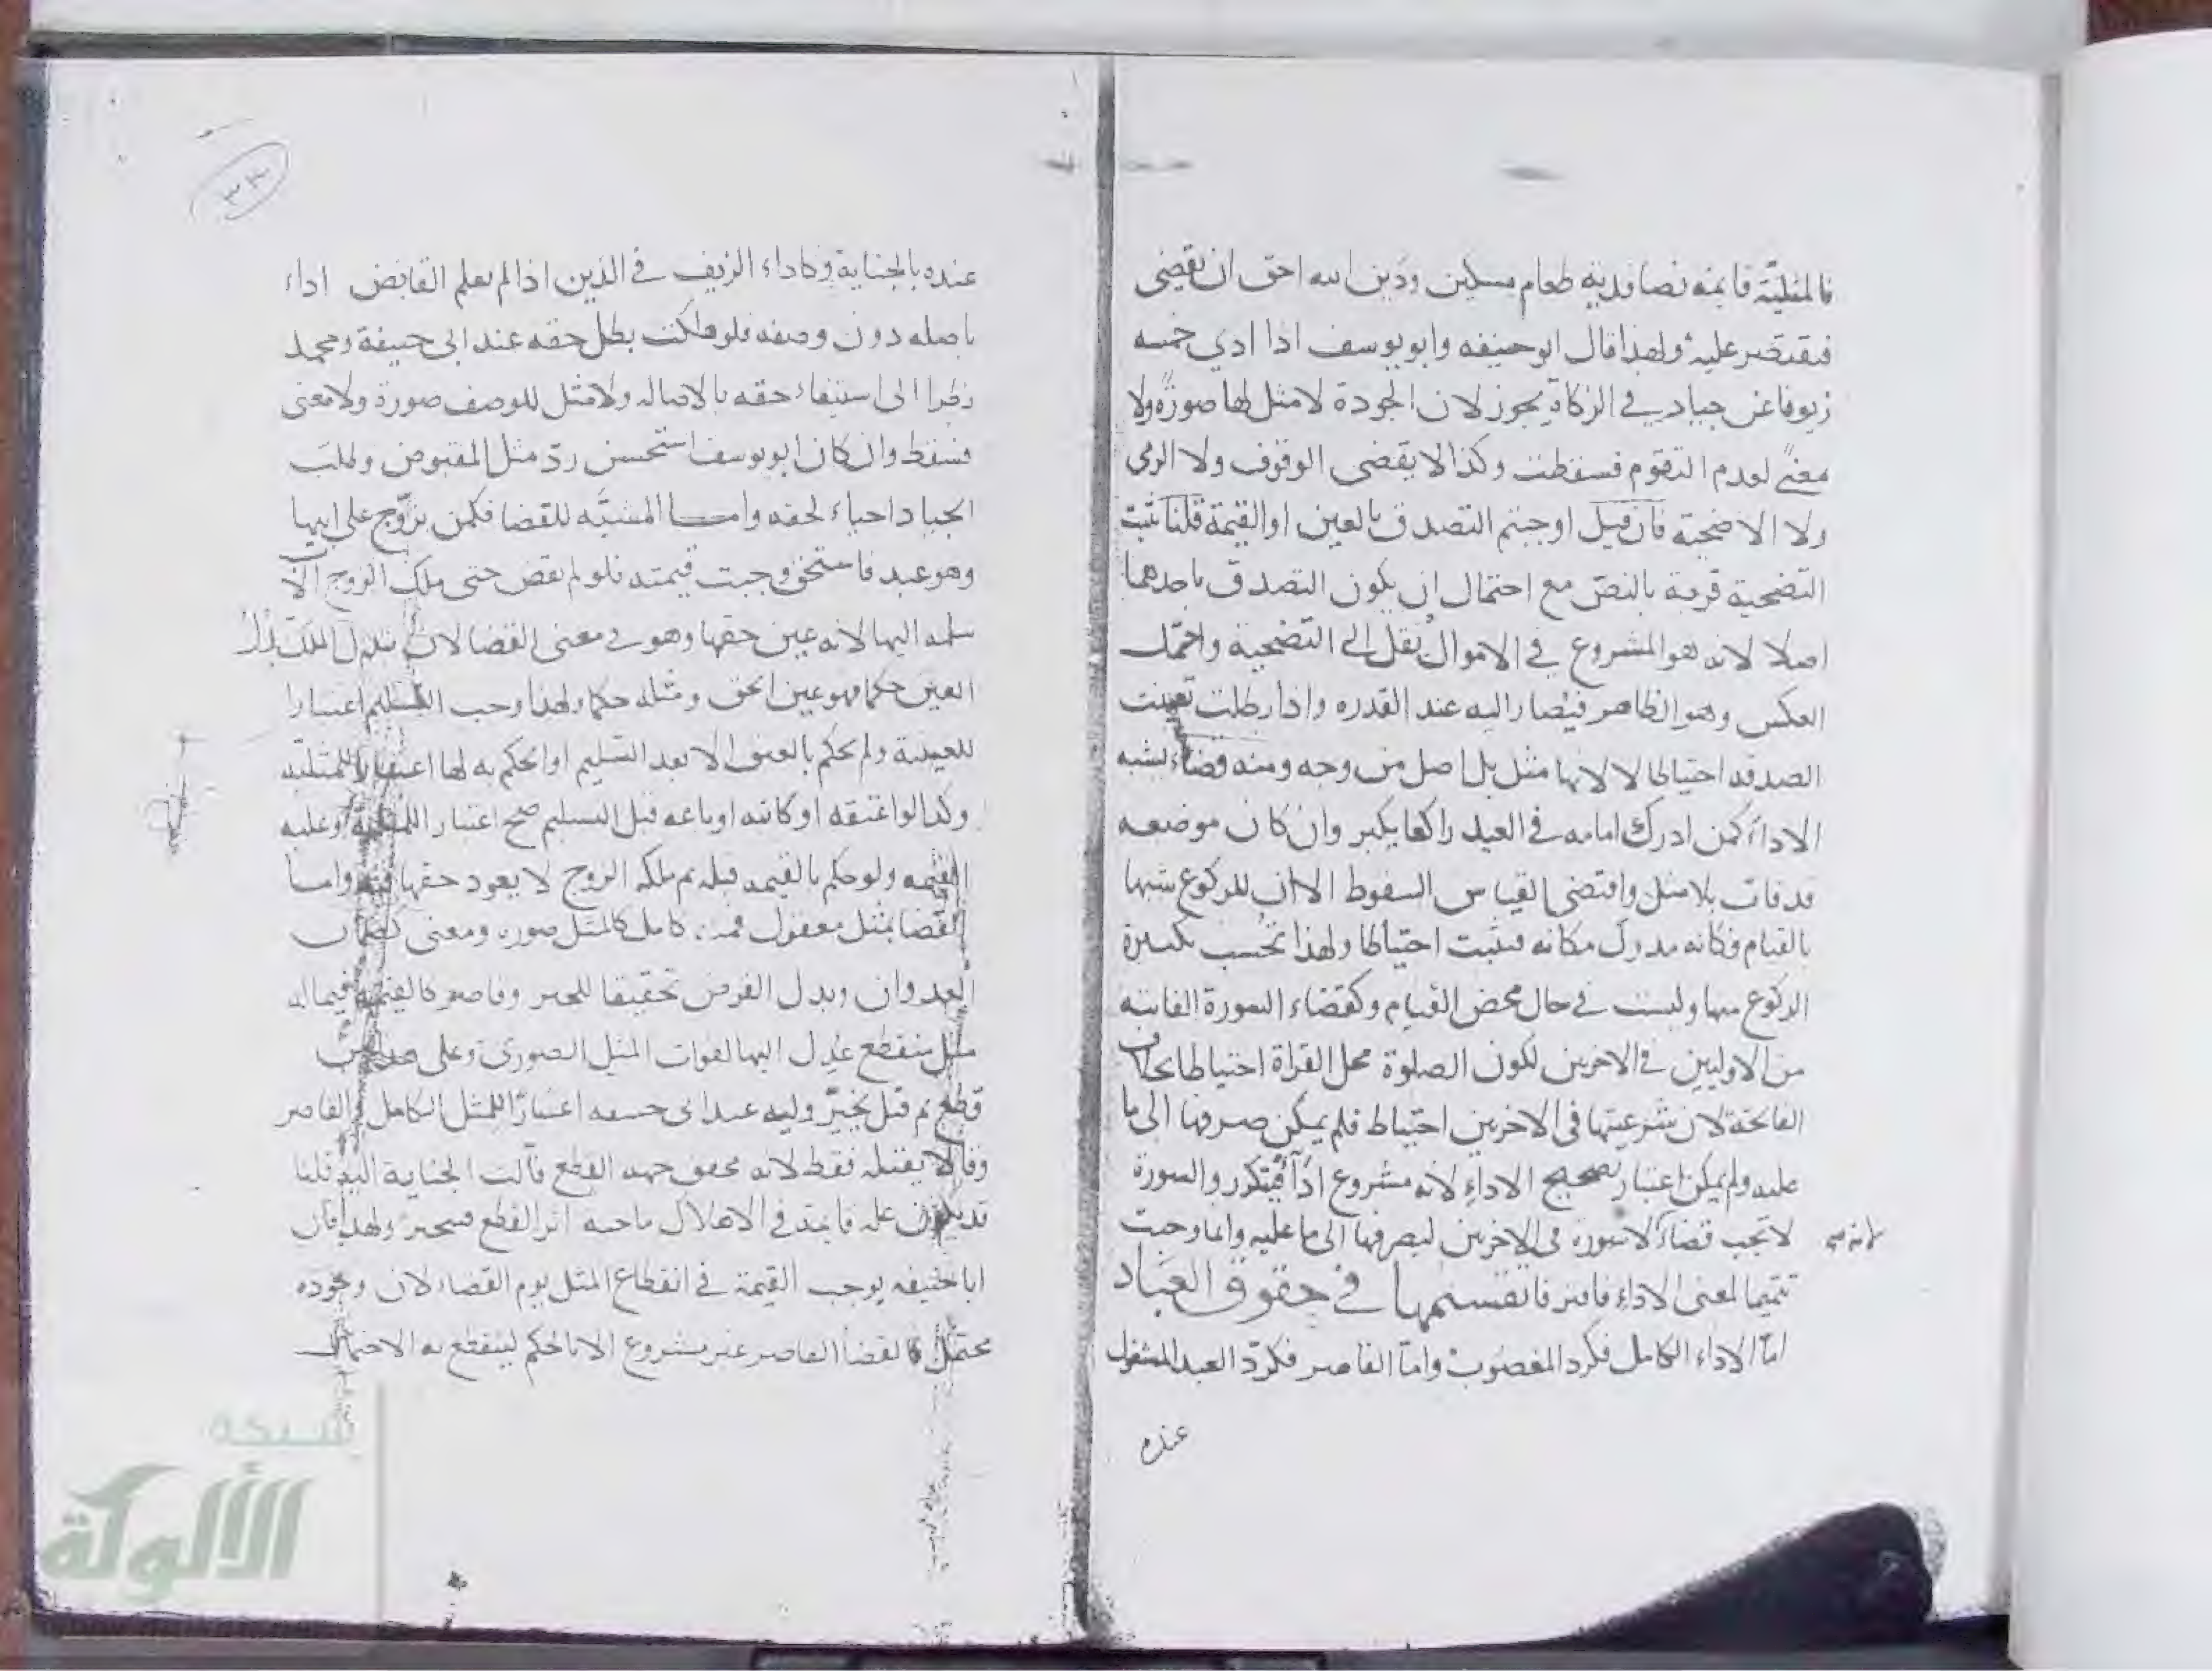 فالمثلية قائمة نصا فدية طعام مسكين ودين الله احق ان يقضى
فيقتصر عليه ولهذا قال ابو حنيفه وابو يوسف اذا ادي خمسه
زيوفا عن جياد في الزكاة يجوز لان الجودة لا مثل لها صورة ولا
معنى لعدم التقوم فسقطت وكذا لا يقضى الوقوف ولا الرمى
ولا الاضحية فان قيل اوجبتم التصدق بالعين او القيمة قلنا ثبت
التضحية قربة بالنص مع احتمال ان يكون التصدق باحدهما
اصلا لانه هو المشروع في الاموال نقل الى التضحية واحتمل
العكس وهو الظاهر فيصار اليه عند القدره واذا بطلت تعينت
الصدقه احتياطا لا لانها مثل بل اصل من وجه ومنه قضاء يشبه
الاداء كمن ادرك امامه في العيد راكعا يكبر وان كان موضعه
قد فات بلا مثل واقتضى القياس السقوط الا ان للركوع شبها
بالقيام فكانه مدرك مكانه فيثبت احتياطا ولهذا تحسب تكبيرة
الركوع منها وليست في حال محض القيام وكقضاء السورة الفايته
من الاوليين في الاخريين لكون الصلوة محل القراة احتياطا بخلاف
الفاتحة لان شرعيتها في الاخريين احتياط فلم يمكن صرفها الى ما
عليه ولم يمكن اعتبار تصحيح الاداء لانه مشروع اداء فيتكرر والسورة
لا تجب قضاء لا سورة في الاخريين ليصرفها الى ما عليه وانما وجبت
لانه
تتميما لمعنى الاداء فافترقا تقسيمها في حقوق العباد
اما الاداء الكامل فكرد المغصوب واما القاصر فكرد العبد المشغول
عنده
٣٣
عنده بالجناية وكاداء الزيف في الدين اذا لم يعلم القابض اداء
باصله دون وصفه فلو هلكت بطل حقه عند ابى حنيفة ومحمد
نظرا الى استيفاء حقه بالاصاله ولا مثل للوصف صورة ولا معنى
فسقط وان كان ابو يوسف استحسن رد مثل المقبوض وطلب
الجياد احياء لحقه واما المشبه للقضا فكمن تزوج على ابيها
وهو عبد فاستحق وجبت قيمته فلو لم يقض حتى ملك الزوج الاب
سلمه اليها لانه عين حقها وهو في معنى القضا لان تبدل الملك بدل
العين حكما فهو عين الحق ومثله حكما ولهذا وجب التسليم اعتبارا
للعينية ولم يحكم بالعتق الا بعد التسليم او الحكم به لها اعتبارا للمثلية
وكذا لو اعتقه او كاتبه او باعه قبل التسليم صح اعتبار المثلية وعليه
القيمه ولو حكم بالقيمه قبله ثم ملكه الزوج لا يعود حقها فيه واما
القضا بمثل معقول فمنه كامل كالمثل صوره ومعنى كضمان
العدوان وبدل القرض تحقيقا للجبر وقاصر كالقيمة فيما له
مثل منقطع عدل اليها لفوات المثل الصورى وعلى هذا من
قطع ثم قتل يخير وليه عند ابى حنيفه اعتبارا للمثل الكامل والقاصر
وقالا يقتله فقط لانه محقق جهه القطع فآلت الجناية اليه قلنا
قد يكون عله قايمة في الاهلاك ماحيه اثر القطع فيتخير ولهذا قال
ابا حنيفه يوجب القيمة في انقطاع المثل يوم القضاء لان وجوده
محتمل فالقضا القاصر غير مشروع الا بالحكم لينقطع به الاحتمال
شبكة
الألوكة